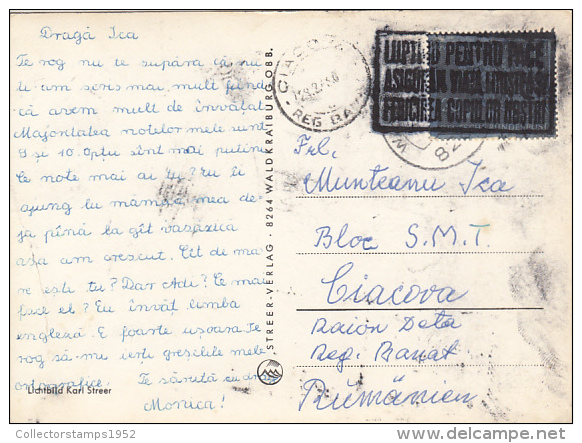 Dragă Ica
Te rog nu te supăra că nu
ti-am scris mai mult fiind
că avem mult de învătat
Majoritatea notelor mele sunt
9 și 10. Optu sînt mai putine
Ce note mai ai tu? Eu îi
ajung lu mama mea de-
ja pînă la gît
așa am crescut. Cît de ma-
re ești tu? Dar Adi? Ce mai
face el? Eu învăt limba
engleză. E foarte ușoara Te
rog să-mi ierti greșelile mele
ortografice! Te sărută cu dr
Monica!
Lichtbild Karl Streer
STREER-VERLAG · 8264 WALDKRAIBURG OBB.
CIACOVA
REG BA
LUPTĂM PENTRU PACE
ASIGURĂM VIAȚA
FERICITĂ A COPIILOR NOȘTRI
Frl.
Munteanu Ica
Bloc S.M.T.
Ciacova
Raion Deta
Reg. Banat
Rumänien
Collectorstamps1952
delcampe.net